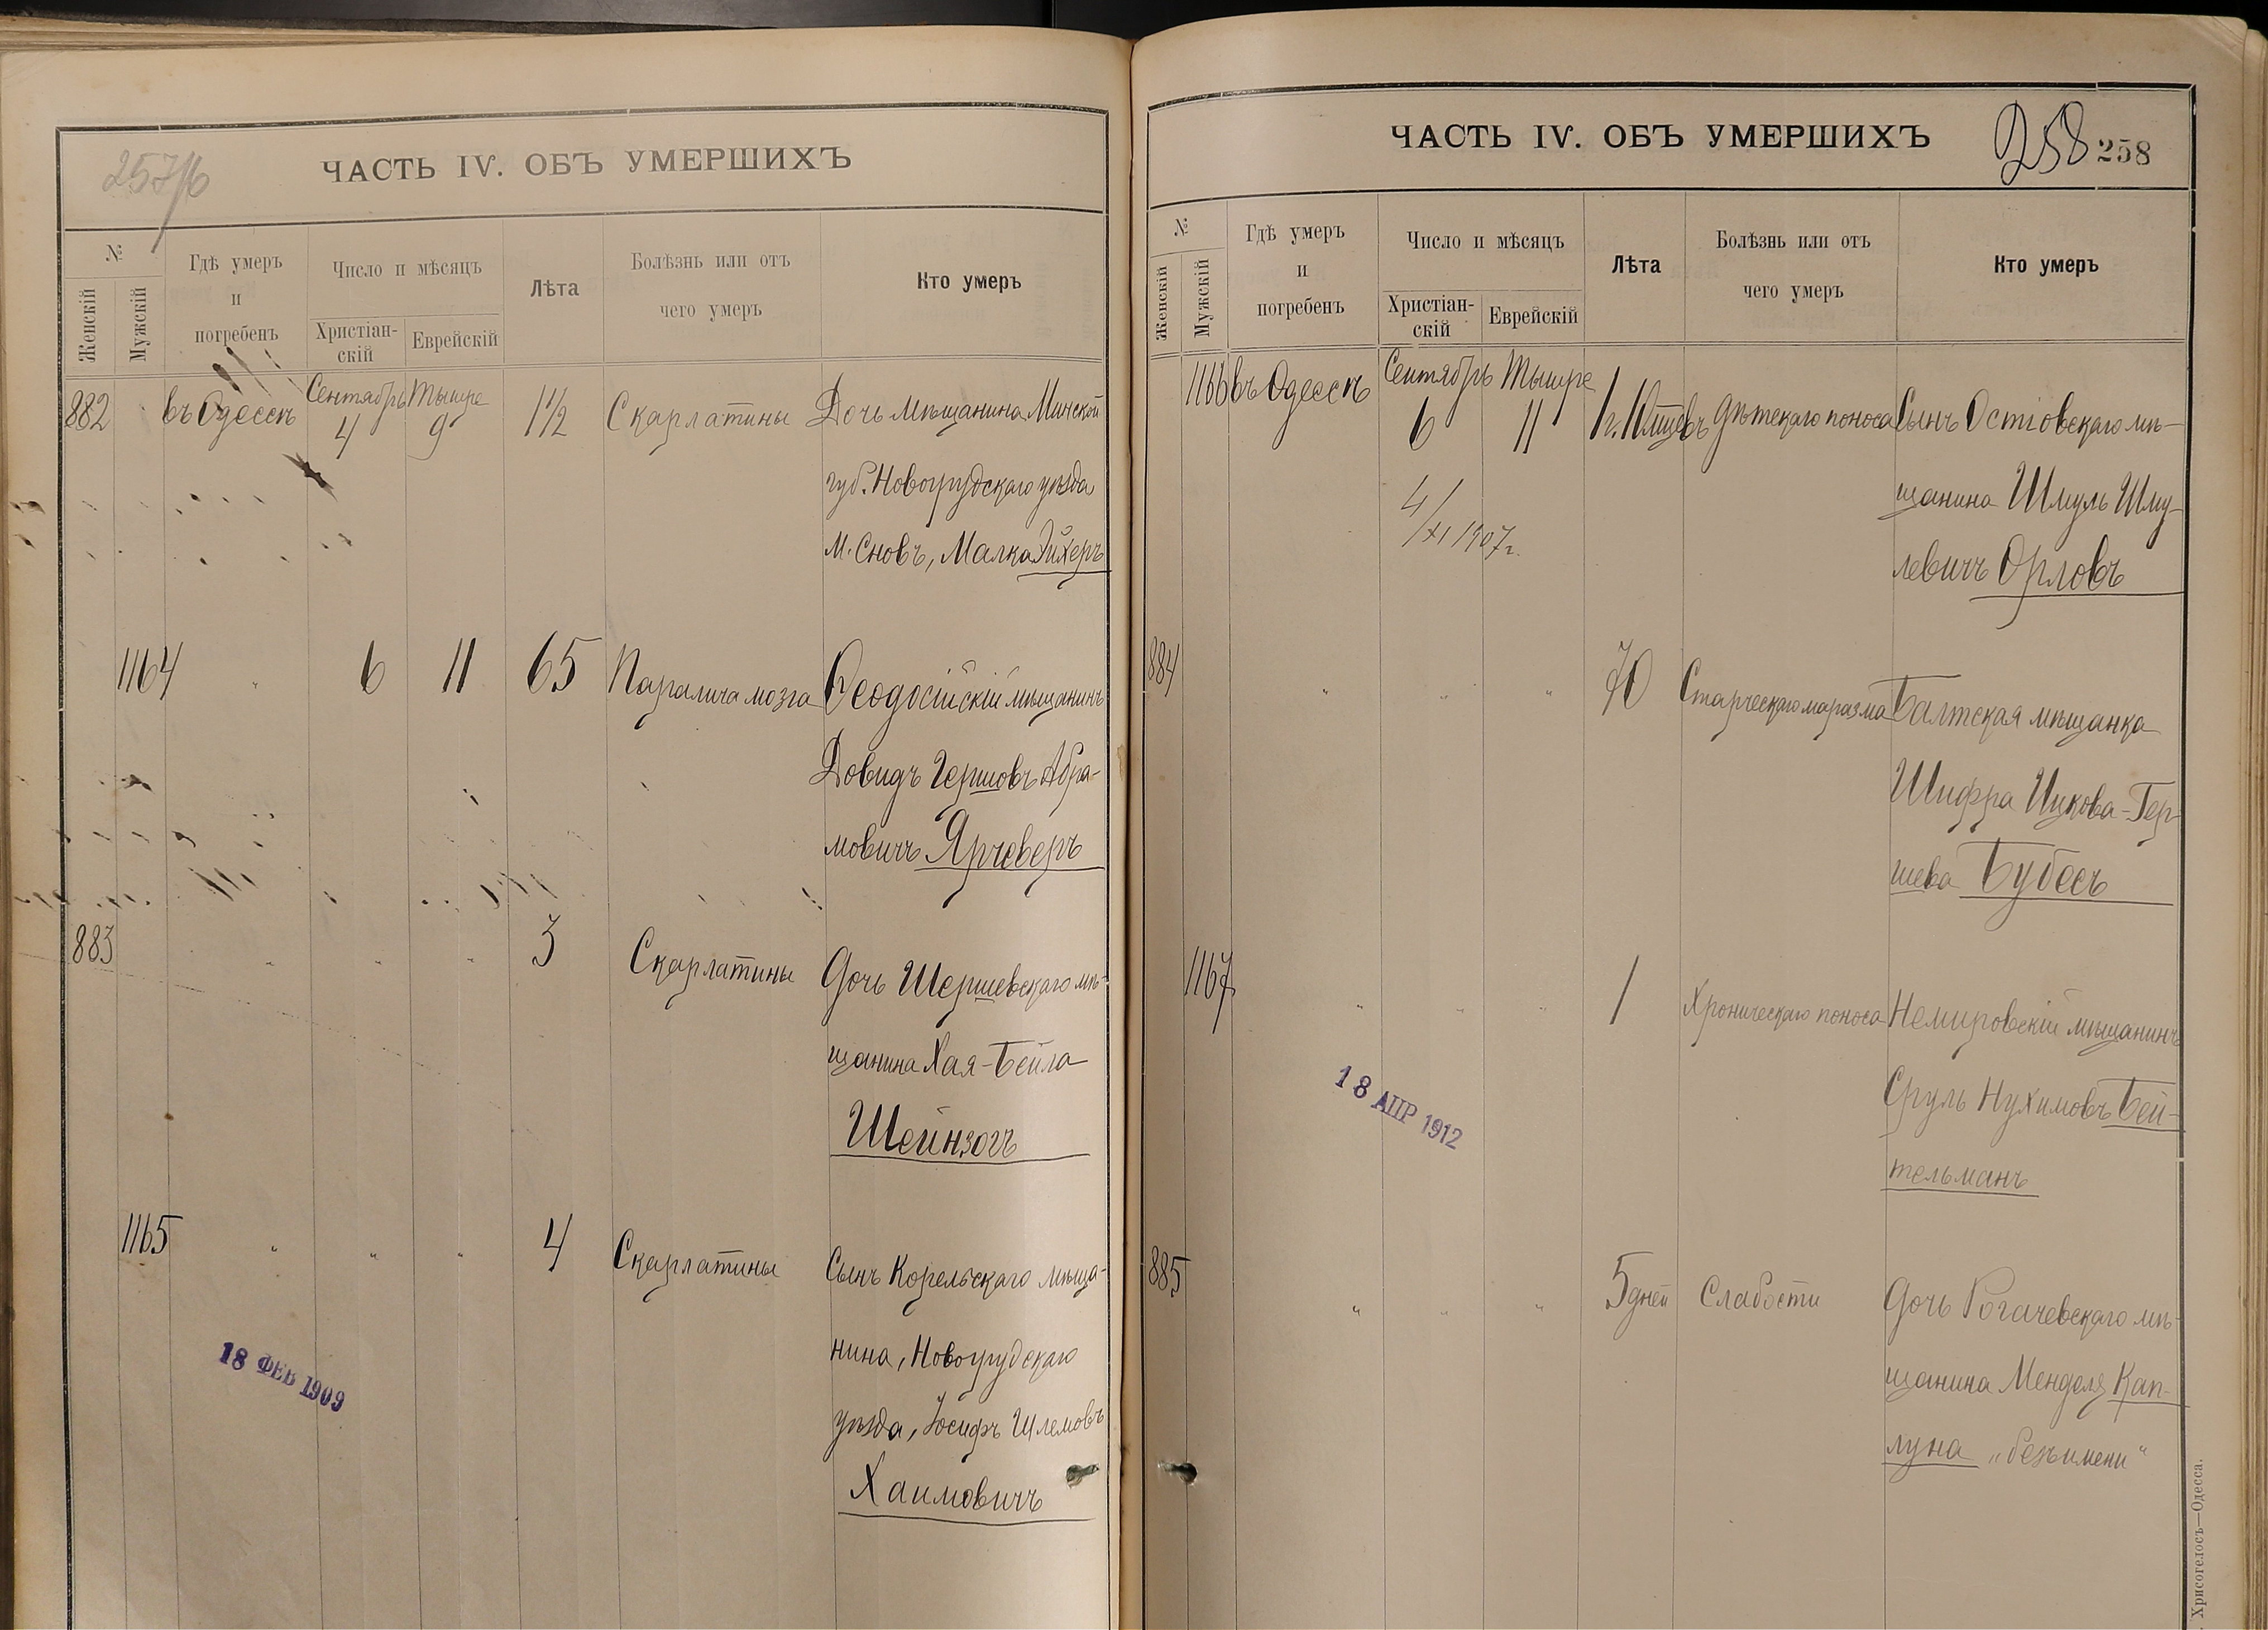 257/б
ЧАСТЬ IV. ОБЪ УМЕРШИХЪ
№
Женскій
Мужскій
Гдѣ умеръ
и
погребенъ
Число и мѣсяцъ
Христіан-
скій
Еврейскій
Лѣта
Болѣзнь или отъ
чего умеръ
Кто умеръ
882 въ Одессѣ Сентябрь 4 Тышре 9 1½ Скарлатины Дочь мѣщанина Минской
губ. Новогрудскаго уѣзда
м. Сновъ, Малка Эйхеръ
1164 " 6 11 65 Паралича мозга Ѳеодосійскій мѣщанинъ
Довидъ Гершовъ Абра-
мовичъ Ярчеверъ
883 " " " 3 Скарлатины Дочь Шершевскаго мѣ-
щанина Хая-Бейла
Шейнзогъ
1165 " " " 4 Скарлатины Сынъ Корельскаго мѣща-
нина, Новогрудскаго
уѣзда, Іосифъ Шлемовъ
Хаимовичъ
18 ФЕВ 1909
ЧАСТЬ IV. ОБЪ УМЕРШИХЪ
258 258
№
Женскій
Мужскій
Гдѣ умеръ
и
погребенъ
Число и мѣсяцъ
Христіан-
скій
Еврейскій
Лѣта
Болѣзнь или отъ
чего умеръ
Кто умеръ
1166 въ Одессѣ Сентябрь 6 Тышре 11 1 г. 10 мѣсяцевъ Дѣтскаго поноса Сынъ Островскаго мѣ-
щанина Шмуль Шму-
левичъ Орловъ
4/XI 1907 г.
884 " " " 70 Старческаго маразма Балтская мѣщанка
Шифра Ицкова-Гер-
шева Бубесъ
1167 " " " 1 Хроническаго поноса Немировскій мѣщанинъ
Сруль Нухимовъ Бей-
тельманъ
18 АПР 1912
885 " " " 5 дней Слабости Дочь Рогачевскаго мѣ-
щанина Менделя Кап-
луна „безъимени"
Хрисогелосъ—Одесса.